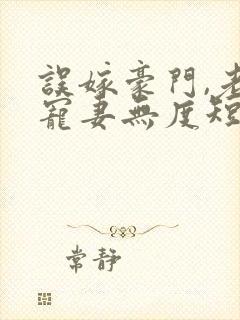 誤嫁豪門,老
寵妻無度短
常靜